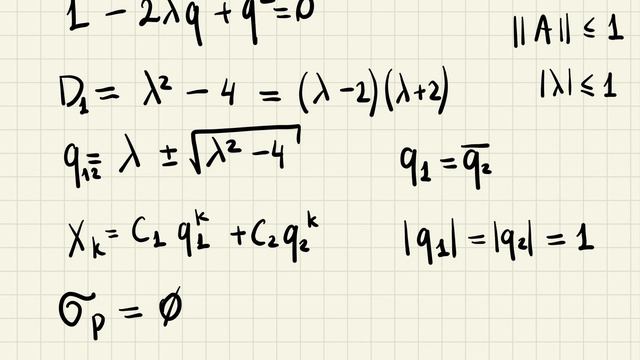 1 − 2λq + q² = 0
||A|| ≤ 1
D₁ = λ² − 4 = (λ−2)(λ+2)
|λ| ≤ 1
q₁,₂ = λ ± √(λ² − 4)
q₁ = q̅₂
Xₖ = C₁ q₁ᵏ + C₂ q₂ᵏ
|q₁| = |q₂| = 1
σₚ = ∅